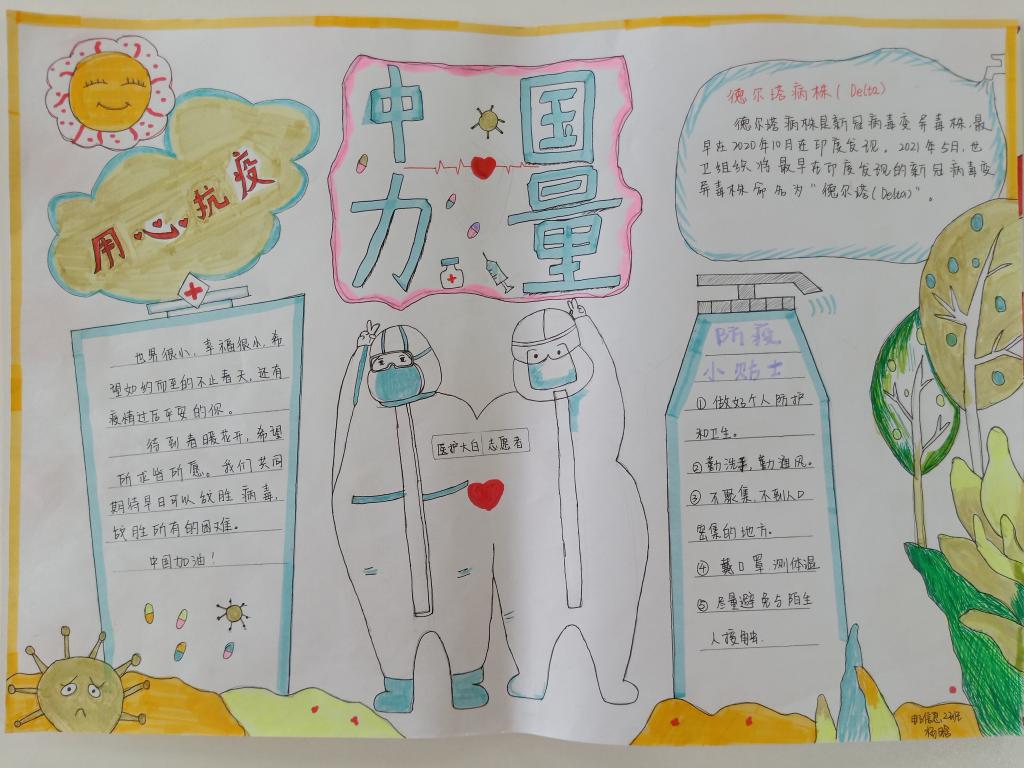 中国
力量
用心抗疫
德尔塔病株(Delta)
德尔塔病株是新冠病毒变异毒株,最
早在2020年10月在印度发现。2021年5月,世
卫组织将最早在印度发现的新冠病毒变
异毒株命名为“德尔塔(Delta)”。
世界很小,幸福很小,希
望如约而至的不止春天,还有
疫情过后平安的你。
待到春暖花开,希望
所求皆所愿。我们共同
期待早日可以战胜病毒,
战胜所有的困难。
中国加油!
医护大白 志愿者
防疫
小贴士
①做好个人防护
和卫生。
②勤洗手,勤通风。
③不聚集,不到人口
密集的地方。
④戴口罩 测体温
⑤尽量避免与陌生
人接触.
信息.2班